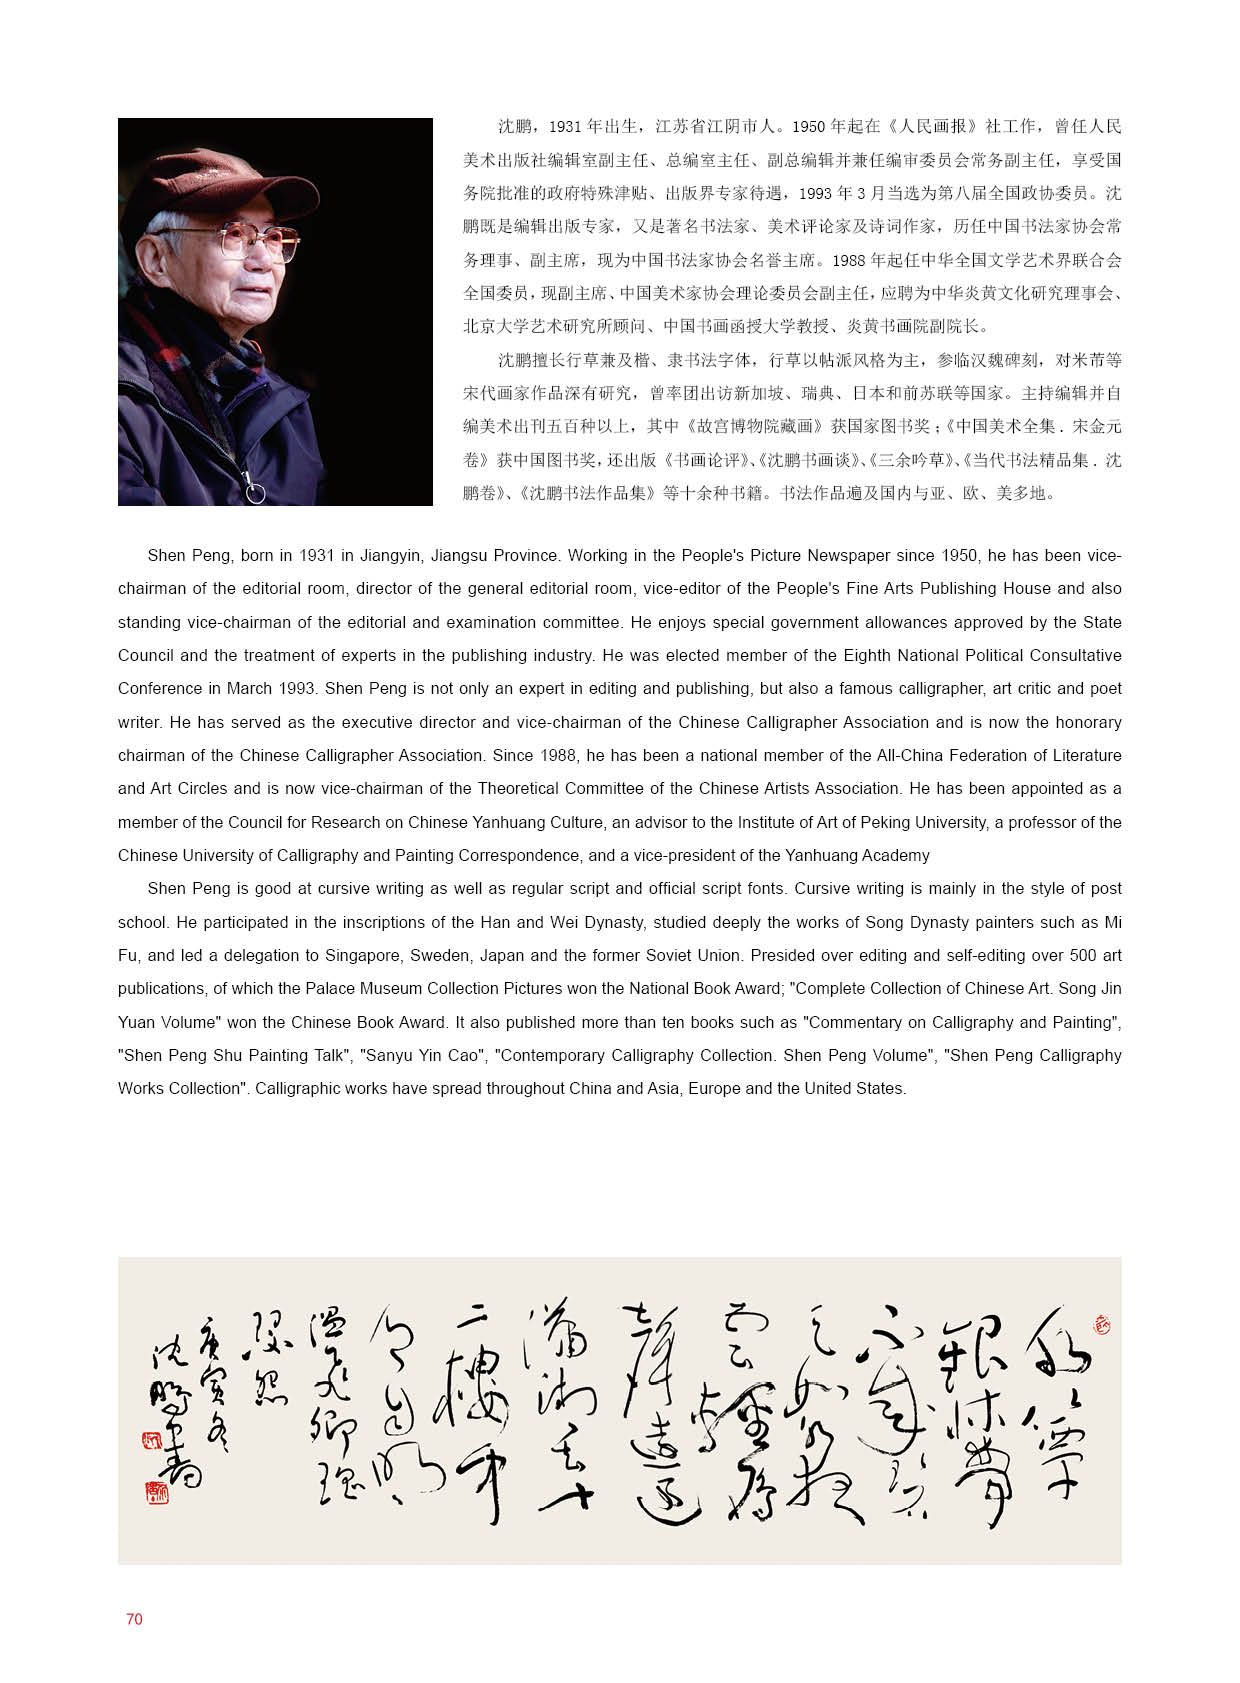 沈鹏，1931 年出生，江苏省江阴市人。1950 年起在《人民画报》社工作，曾任人民
美术出版社编辑室副主任、总编室主任、副总编辑并兼任编审委员会常务副主任，享受国
务院批准的政府特殊津贴、出版界专家待遇，1993 年 3 月当选为第八届全国政协委员。沈
鹏既是编辑出版专家，又是著名书法家、美术评论家及诗词作家，历任中国书法家协会常
务理事、副主席，现为中国书法家协会名誉主席。1988 年起任中华全国文学艺术界联合会
全国委员，现副主席、中国美术家协会理论委员会副主任，应聘为中华炎黄文化研究理事会、
北京大学艺术研究所顾问、中国书画函授大学教授、炎黄书画院副院长。
沈鹏擅长行草兼及楷、隶书法字体，行草以帖派风格为主，参临汉魏碑刻，对米芾等
宋代画家作品深有研究，曾率团出访新加坡、瑞典、日本和前苏联等国家。主持编辑并自
编美术出刊五百种以上，其中《故宫博物院藏画》获国家图书奖；《中国美术全集．宋金元
卷》获中国图书奖，还出版《书画论评》、《沈鹏书画谈》、《三余吟草》、《当代书法精品集．沈
鹏卷》、《沈鹏书法作品集》等十余种书籍。书法作品遍及国内与亚、欧、美多地。
Shen Peng, born in 1931 in Jiangyin, Jiangsu Province. Working in the People's Picture Newspaper since 1950, he has been vice-
chairman of the editorial room, director of the general editorial room, vice-editor of the People's Fine Arts Publishing House and also
standing vice-chairman of the editorial and examination committee. He enjoys special government allowances approved by the State
Council and the treatment of experts in the publishing industry. He was elected member of the Eighth National Political Consultative
Conference in March 1993. Shen Peng is not only an expert in editing and publishing, but also a famous calligrapher, art critic and poet
writer. He has served as the executive director and vice-chairman of the Chinese Calligrapher Association and is now the honorary
chairman of the Chinese Calligrapher Association. Since 1988, he has been a national member of the All-China Federation of Literature
and Art Circles and is now vice-chairman of the Theoretical Committee of the Chinese Artists Association. He has been appointed as a
member of the Council for Research on Chinese Yanhuang Culture, an advisor to the Institute of Art of Peking University, a professor of the
Chinese University of Calligraphy and Painting Correspondence, and a vice-president of the Yanhuang Academy
Shen Peng is good at cursive writing as well as regular script and official script fonts. Cursive writing is mainly in the style of post
school. He participated in the inscriptions of the Han and Wei Dynasty, studied deeply the works of Song Dynasty painters such as Mi
Fu, and led a delegation to Singapore, Sweden, Japan and the former Soviet Union. Presided over editing and self-editing over 500 art
publications, of which the Palace Museum Collection Pictures won the National Book Award; "Complete Collection of Chinese Art. Song Jin
Yuan Volume" won the Chinese Book Award. It also published more than ten books such as "Commentary on Calligraphy and Painting",
"Shen Peng Shu Painting Talk", "Sanyu Yin Cao", "Contemporary Calligraphy Collection. Shen Peng Volume", "Shen Peng Calligraphy
Works Collection". Calligraphic works have spread throughout China and Asia, Europe and the United States.
冰簟
银床梦
不成碧
天如水夜
云轻雁
声远过
潇湘去十
二楼中
月自明
温飞卿瑶
瑟怨
庚寅冬
沈鹏书
70